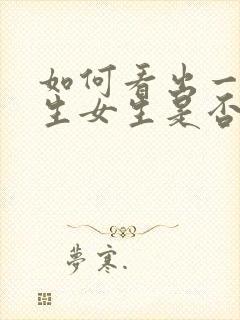 如何看出一
生女生是否
夢寒.